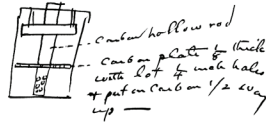 carbon hollow rod
carbon plate ⅛ thick
with lot ¼ inch holes
& put on carbon 1/2 way
up —